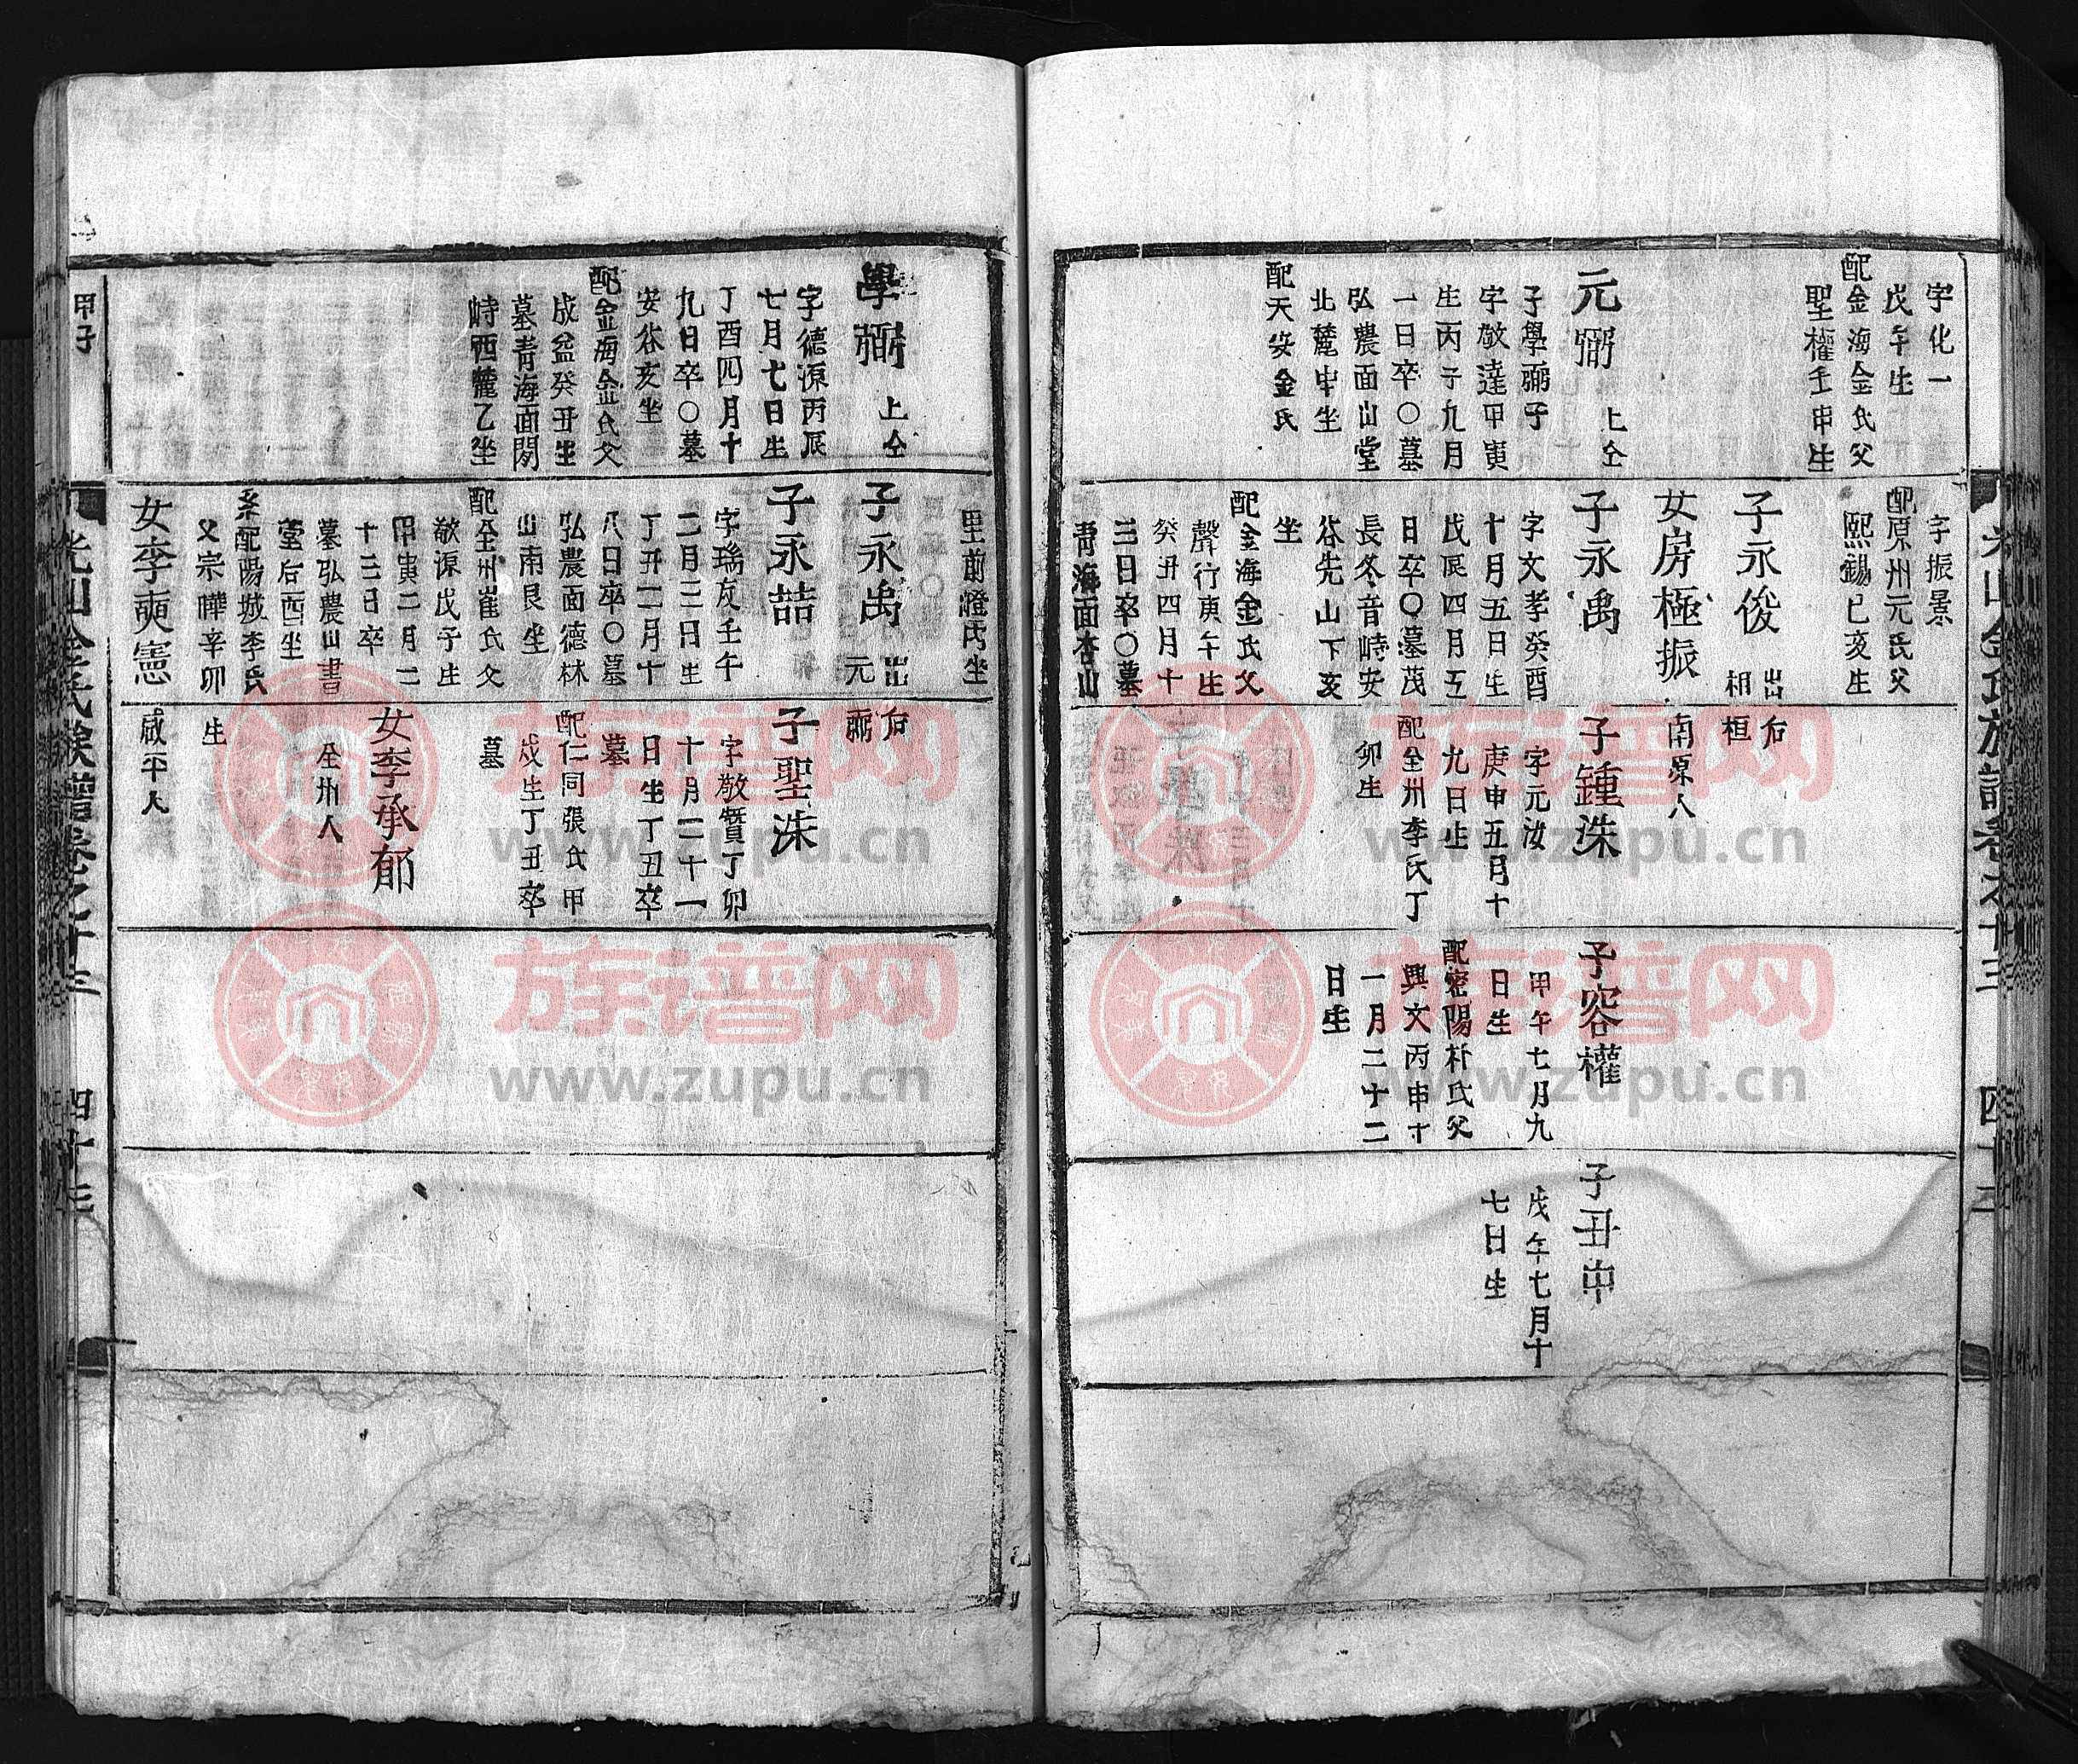 字化一
戊午生
配金海金氏父
聖權壬申生
元弼 上仝
子學弼子
字敬達甲寅
生丙子九月
一日卒〇墓
弘農面山堂
北麓申坐
配天安金氏
字振景
配原州元氏父
熙錫己亥生
子永俊 出后
相桓
女房極振 南原人
子永禹
字文孝癸酉
十月五日生
戊辰四月五
日卒〇墓茂
長冬音峙安
谷先山下亥
坐
配金海金氏父
聲行庚午生
癸丑四月十
三日卒〇墓
青海面杏山
子鍾洙
字元汝
庚申五月十
九日生
配全州李氏丁
卯生
子容權
甲午七月九
日生
配密陽朴氏父
興文丙申十
一月二十二
日生
子丑中
戊午七月十
七日生
光山金氏族譜卷之十三
學弼 上仝
字德源丙辰
七月七日生
丁酉四月十
九日卒〇墓
安谷亥坐
配金海金氏父
成益癸丑生
墓青海面閑
峙西麓乙坐
里前燈丙坐
子永禹 出后
元弼
子永喆
字瑞友壬午
二月三日生
丁丑二月十
八日卒〇墓
弘農面德林
山南艮坐
配全州崔氏父
敬源戊子生
甲寅二月二
十三日卒
墓弘農山書
堂后酉坐
系配陽城李氏
父宗曄辛卯
生
女李奭憲 咸平人
子聖洙
字敬贊丁卯
十月二十一
日生丁丑卒
墓
配仁同張氏甲
戌生丁丑卒
墓
女李承郁
全州人
甲子
光山金氏族譜卷之十三